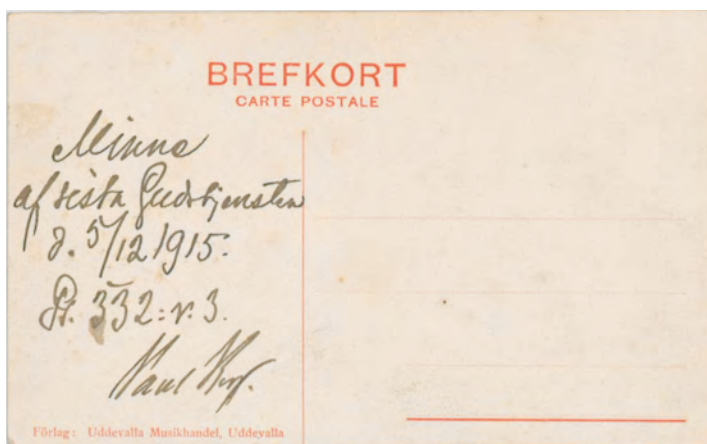 BREFKORT
CARTE POSTALE
Minne
af sista Gudstjensten
d. 5/12 1915.
Ps. 332: v. 3.
Paul
Förlag: Uddevalla Musikhandel, Uddevalla